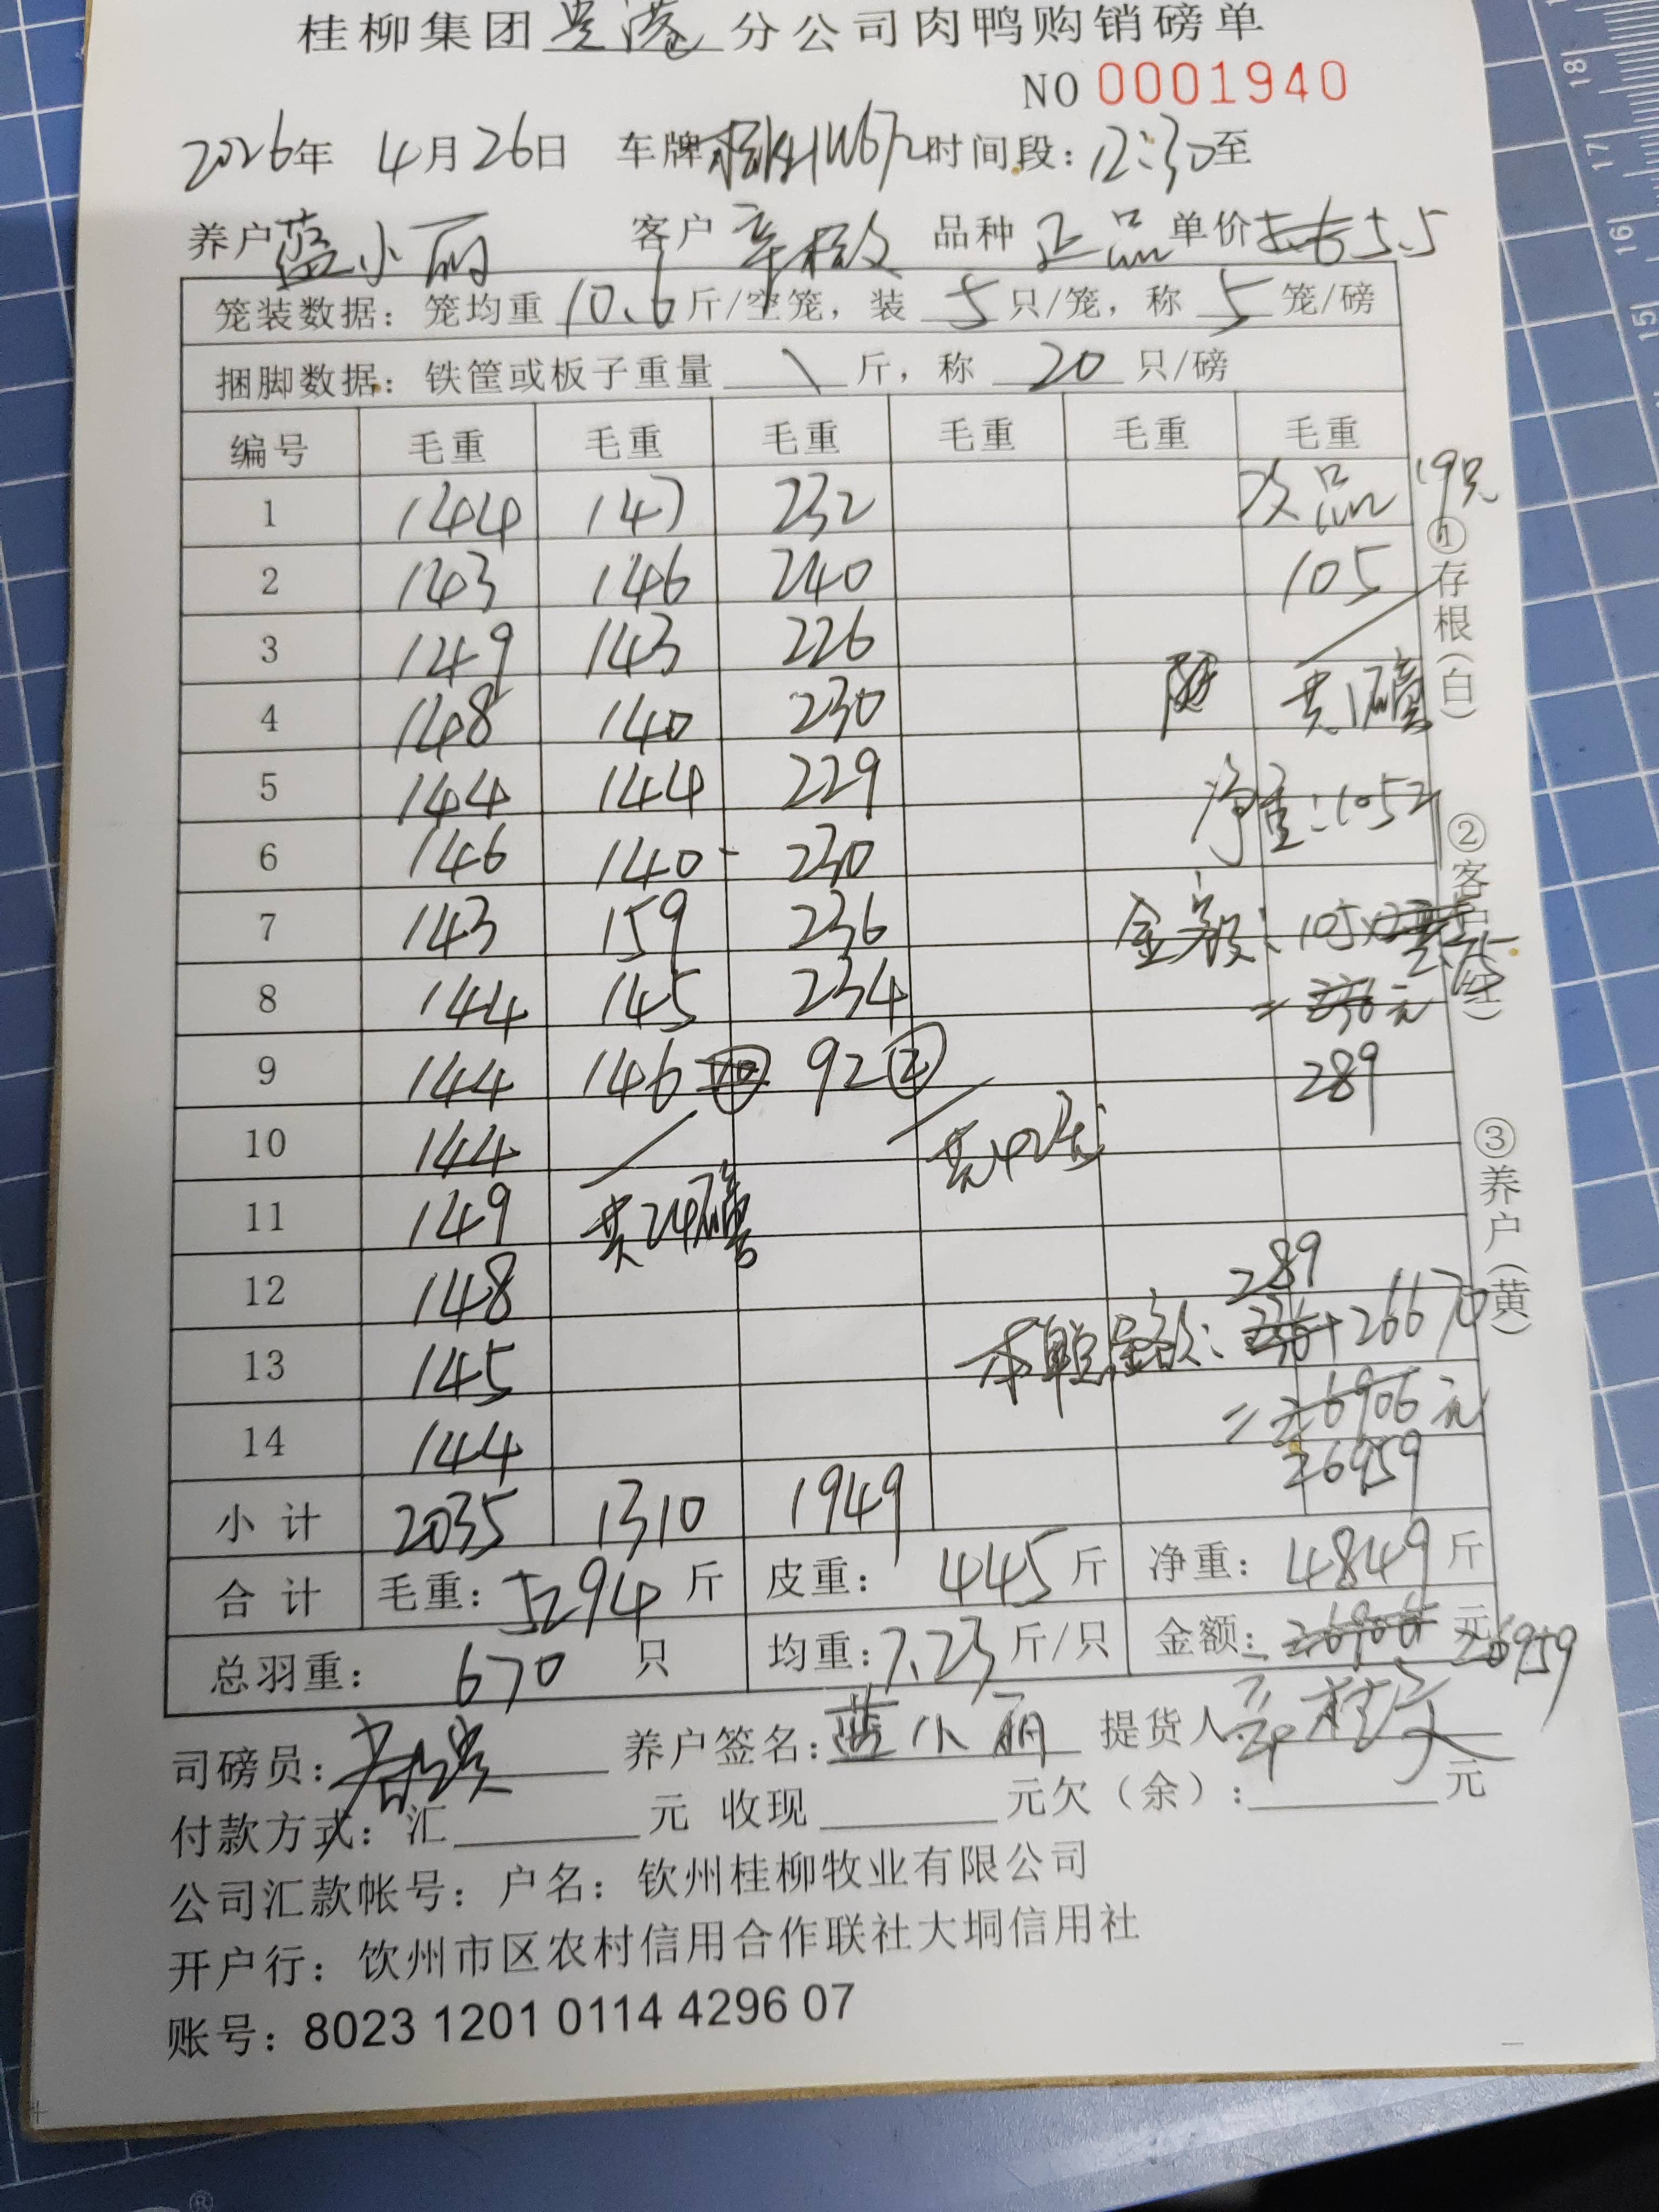 桂柳集团贵港分公司肉鸭购销磅单
NO 0001940
2026年 4月26日 车牌 时间段：12:30至
养户 蓝小丽 客户 品种 正品 单价 5.5
笼装数据：笼均重 10.6 斤/空笼，装 5 只/笼，称 5 笼/磅
捆脚数据：铁筐或板子重量 \ 斤，称 20 只/磅
编号 毛重 毛重 毛重 毛重 毛重 毛重
1 144 147 232 次品 19只
2 143 146 240 105
3 149 143 226
4 148 140 230 共1磅
5 144 144 229 净重：105斤
6 146 140 230
7 143 159 236 金额：105×2.75
8 144 145 234 = 元
9 144 146 92② 289
10 144 共42笼
11 149 共24磅
12 148 289
13 145 本单总金额：+26670
14 144 =26906元
26959
小计 2035 1310 1949
合计 毛重：5294斤 皮重：445斤 净重：4849斤
总羽重：670只 均重：7.23斤/只 金额：26906元 26959
司磅员： 养户签名：蓝小丽 提货人
付款方式：汇 元 收现 元欠（余）： 元
公司汇款帐号：户名：钦州桂柳牧业有限公司
开户行：钦州市区农村信用合作联社大垌信用社
账号：8023 1201 0114 4296 07
①存根（白）
②客户（红）
③养户（黄）
18
17
16
15